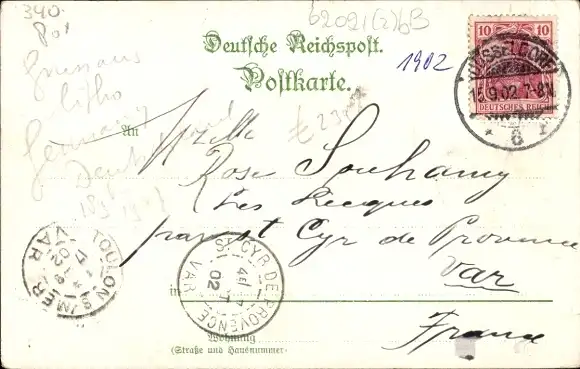 340.
62021(2)bB
Deutsche Reichspost.
Postkarte.
1902
10 10
DEUTSCHES REICH
DÜSSELDORF
15.9.02.7-8N.
* 6 r
Grussaus
litho
Germany
An
Mlle
Rose Souhamy
Les Lecques
par St Cyr de Provence
Var
in
France
TOULON S MER
VAR
17
02
ST CYR DE PROVENCE
VAR
02
Wohnung
(Straße und Hausnummer)